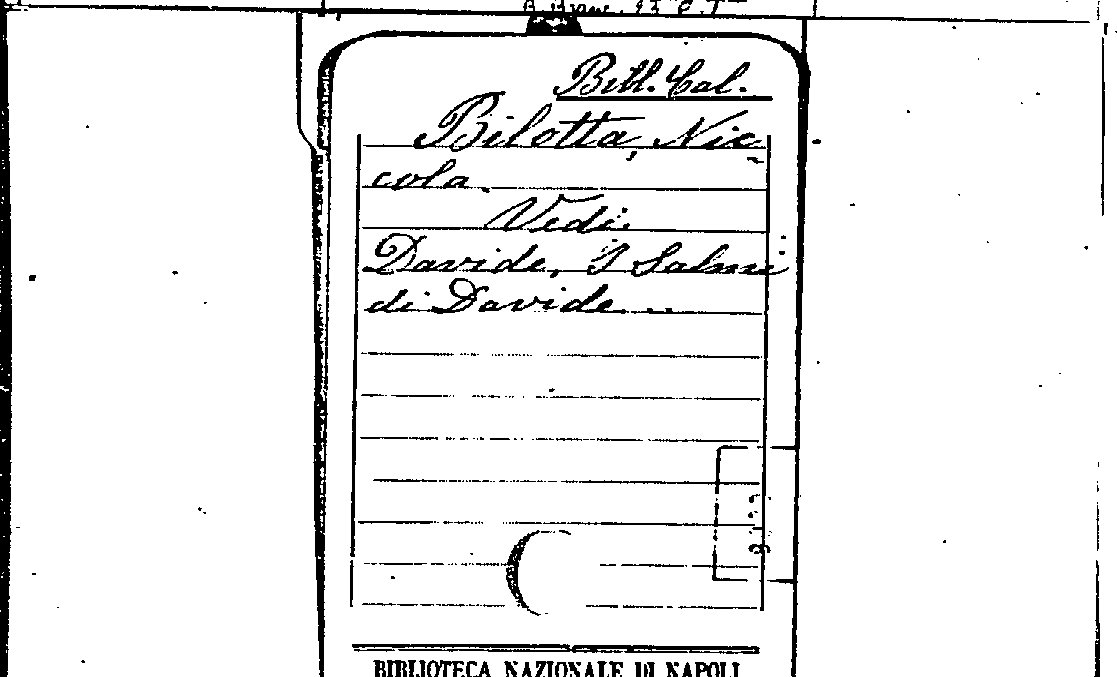 Bibl. Cal.
Bilotta, Nic
cola.
Vedi:
Davide, I Salmi
di Davide...
BIBLIOTECA NAZIONALE DI NAPOLI